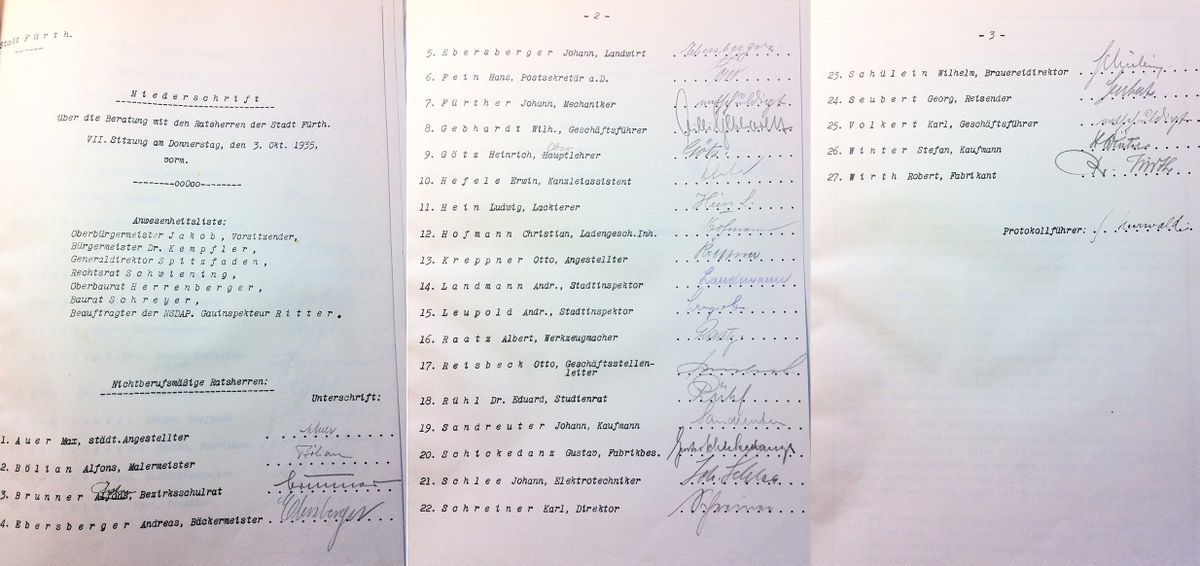 Stadt Fürth.
Niederschrift
über die Beratung mit den Ratsherren der Stadt Fürth.
VII. Sitzung am Donnerstag, den 3. Okt. 1935,
vorm.
--------oo0oo--------
Anwesenheitsliste:
Oberbürgermeister Jakob, Vorsitzender,
Bürgermeister Dr. Kempfler,
Generaldirektor Spitzfaden,
Rechtsrat Schwiening,
Oberbaurat Herrenberger,
Baurat Schreyer,
Beauftragter der NSDAP. Gauinspekteur Ritter.
Nichtberufsmäßige Ratsherren:
Unterschrift:
1. Auer Max, städt.Angestellter Auer
2. Bölian Alfons, Malermeister Bölian
3. Brunner Alfons, Bezirksschulrat Brunner
4. Ebersberger Andreas, Bäckermeister Ebersberger
- 2 -
5. Ebersberger Johann, Landwirt Ebersberger
6. Fein Hans, Postsekretär a.D.
7. Fürther Johann, Mechaniker entschuldigt
8. Gebhardt Wilh., Geschäftsführer
9. Götz Heinrich, Hauptlehrer Götz
10. Hefele Erwin, Kanzleiassistent
11. Hein Ludwig, Lackierer Hein L.
12. Hofmann Christian, Ladengesch.Inh. Hofmann
13. Kreppner Otto, Angestellter
14. Landmann Andr., Stadtinspektor Landmann
15. Leupold Andr., Stadtinspektor
16. Raatz Albert, Werkzeugmacher Raatz
17. Reisbeck Otto, Geschäftsstellen-
leiter
18. Rühl Dr. Eduard, Studienrat Rühl
19. Sandreuter Johann, Kaufmann Sandreuter
20. Schickedanz Gustav, Fabrikbes. Gustav Schickedanz
21. Schlee Johann, Elektrotechniker Joh. Schlee
22. Schreiner Karl, Direktor
- 3 -
23. Schülein Wilhelm, Brauereidirektor Schülein
24. Seubert Georg, Reisender Seubert
25. Volkert Karl, Geschäftsführer entschuldigt
26. Winter Stefan, Kaufmann Winter
27. Wirth Robert, Fabrikant Wirth
Protokollführer: